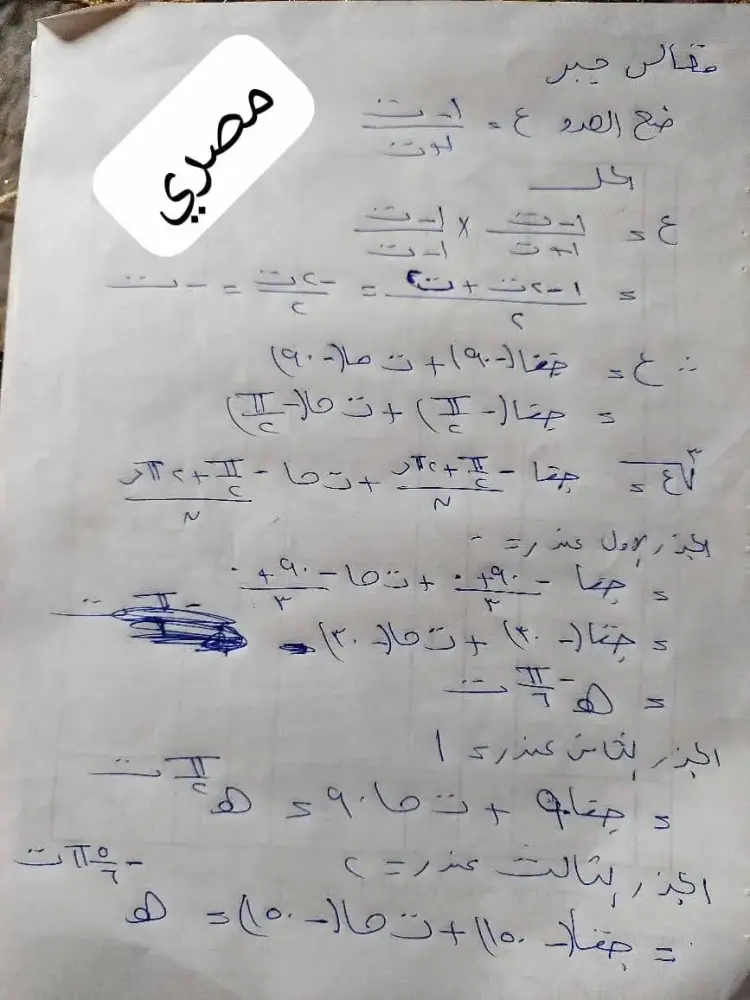 مقالى جبر
مصري
ضع العدد ع = (١ - ت) / (١ + ت)
الحل
ع = (١ - ت) / (١ + ت) × (١ - ت) / (١ - ت)
= (١ - ٢ت + ت٢) / ٢ = -٢ت / ٢ = - ت
∴ ع = جتا(-٩٠) + ت حا(-٩٠)
= جتا(-π/٢) + ت حا(-π/٢)
٣√ع = جتا (-π/٢ + ٢πر) / ٣ + ت حا (-π/٢ + ٢πر) / ٣
الجذر الاول عند ر = ٠
= جتا (-٩٠ + ٠) / ٣ + ت حا (-٩٠ + ٠) / ٣
= جتا(-٣٠) + ت حا(-٣٠)
= هـ -π/٦ ت
الجذر الثانى عند ر = ١
= جتا ٩٠ + ت حا ٩٠ = هـ π/٢ ت
الجذر الثالث عند ر = ٢
= جتا(-١٥٠) + ت حا(-١٥٠) = هـ -٥/٦ π ت